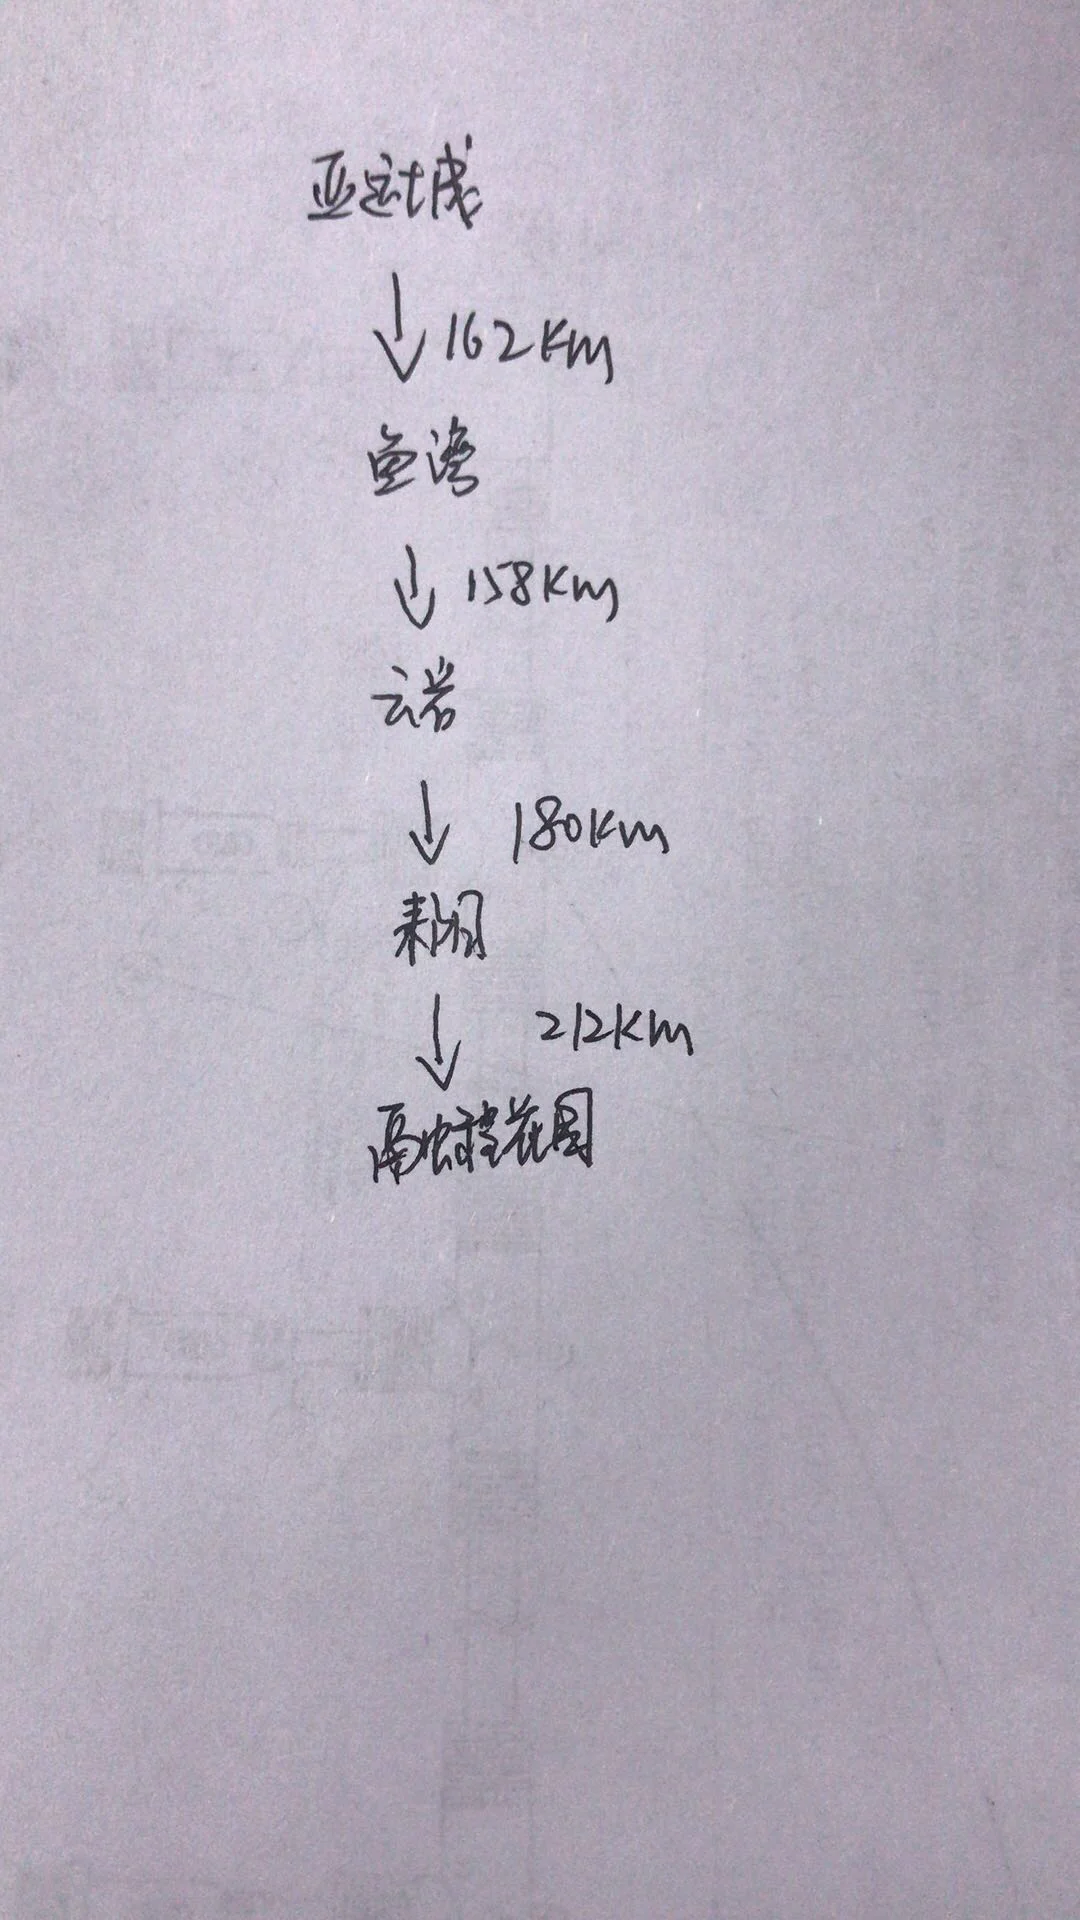 亚运城
162km
鱼湾
158km
云岩
180km
212km
花园